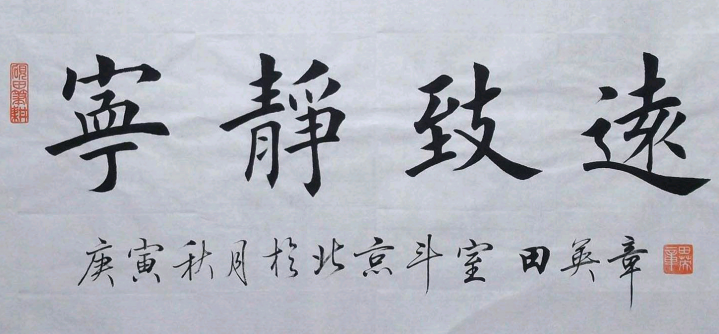 寧靜致遠
庚寅秋月於北京斗室田英章